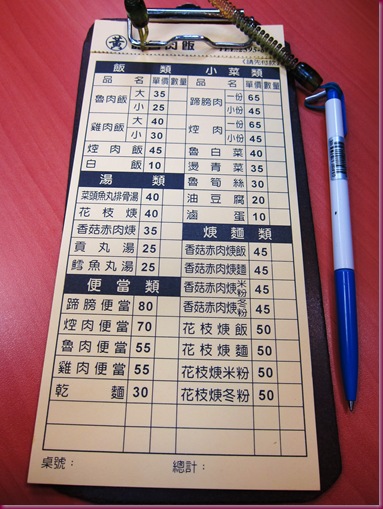 黃 肉飯
(請先付款)
飯類
品名 單價 數量
魯肉飯 大 35
小 25
雞肉飯 大 40
小 30
焢肉飯 45
白飯 10
湯類
菜頭魚丸排骨湯 40
花枝焿 40
香菇赤肉焿 35
貢丸湯 25
鱈魚丸湯 25
便當類
蹄膀便當 80
焢肉便當 70
魯肉便當 55
雞肉便當 55
乾麵 30
小菜類
品名 單價 數量
蹄膀肉 一份 65
小份 45
焢肉 一份 65
小份 45
魯白菜 40
燙青菜 35
魯筍絲 30
油豆腐 20
滷蛋 10
焿麵類
香菇赤肉焿飯 45
香菇赤肉焿麵 45
香菇赤肉焿米粉 45
香菇赤肉焿冬粉 45
花枝焿飯 50
花枝焿麵 50
花枝焿米粉 50
花枝焿冬粉 50
桌號： 總計：